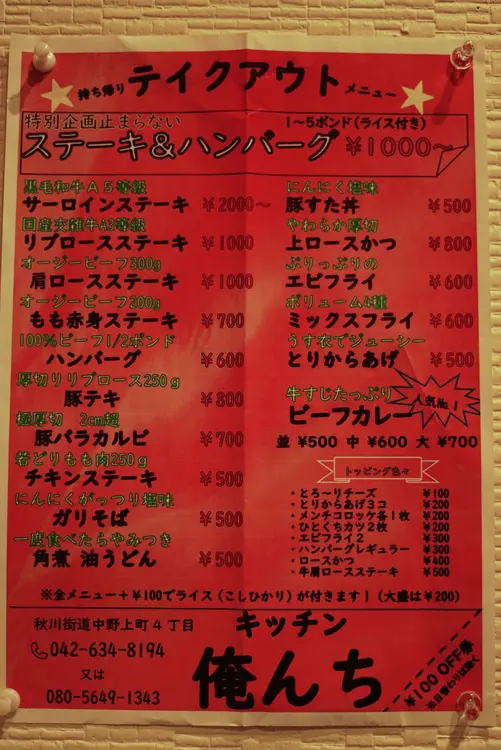 持ち帰り テイクアウト メニュー
特別企画止まらない 1〜5ポンド(ライス付き)
ステーキ&ハンバーグ ¥1000〜
黒毛和牛A5等級
サーロインステーキ ¥2000〜
国産交雑牛A3等級
リブロースステーキ ¥1000
オージービーフ300g
肩ロースステーキ ¥1000
オージービーフ200g
もも赤身ステーキ ¥700
100%ビーフ1/2ポンド
ハンバーグ ¥600
厚切りリブロース250g
豚テキ ¥800
極厚切 2cm超
豚バラカルビ ¥700
若どりもも肉250g
チキンステーキ ¥500
にんにくがっつり塩味
ガリそば ¥500
一度食べたらやみつき
角煮 油うどん ¥500
にんにく塩味
豚すた丼 ¥500
やわらか厚切
上ロースかつ ¥800
ぷりっぷりの
エビフライ ¥600
ボリューム4種
ミックスフライ ¥600
うす衣でジューシー
とりからあげ ¥500
牛すじたっぷり
ビーフカレー 人気No.1
並 ¥500 中 ¥600 大 ¥700
トッピング色々
・とろ〜りチーズ ¥100
・とりからあげ3コ ¥200
・メンチコロッケ各1枚 ¥200
・ひとくちカツ2枚 ¥200
・エビフライ2 ¥300
・ハンバーグレギュラー ¥300
・ロースかつ ¥400
・牛肩ロースステーキ ¥500
※全メニュー+¥100でライス(こしひかり)が付きます!(大盛は¥200)
秋川街道中野上町4丁目
042-634-8194
又は
080-5649-1343
キッチン
俺んち
¥100 OFF券
※日替わりは除く